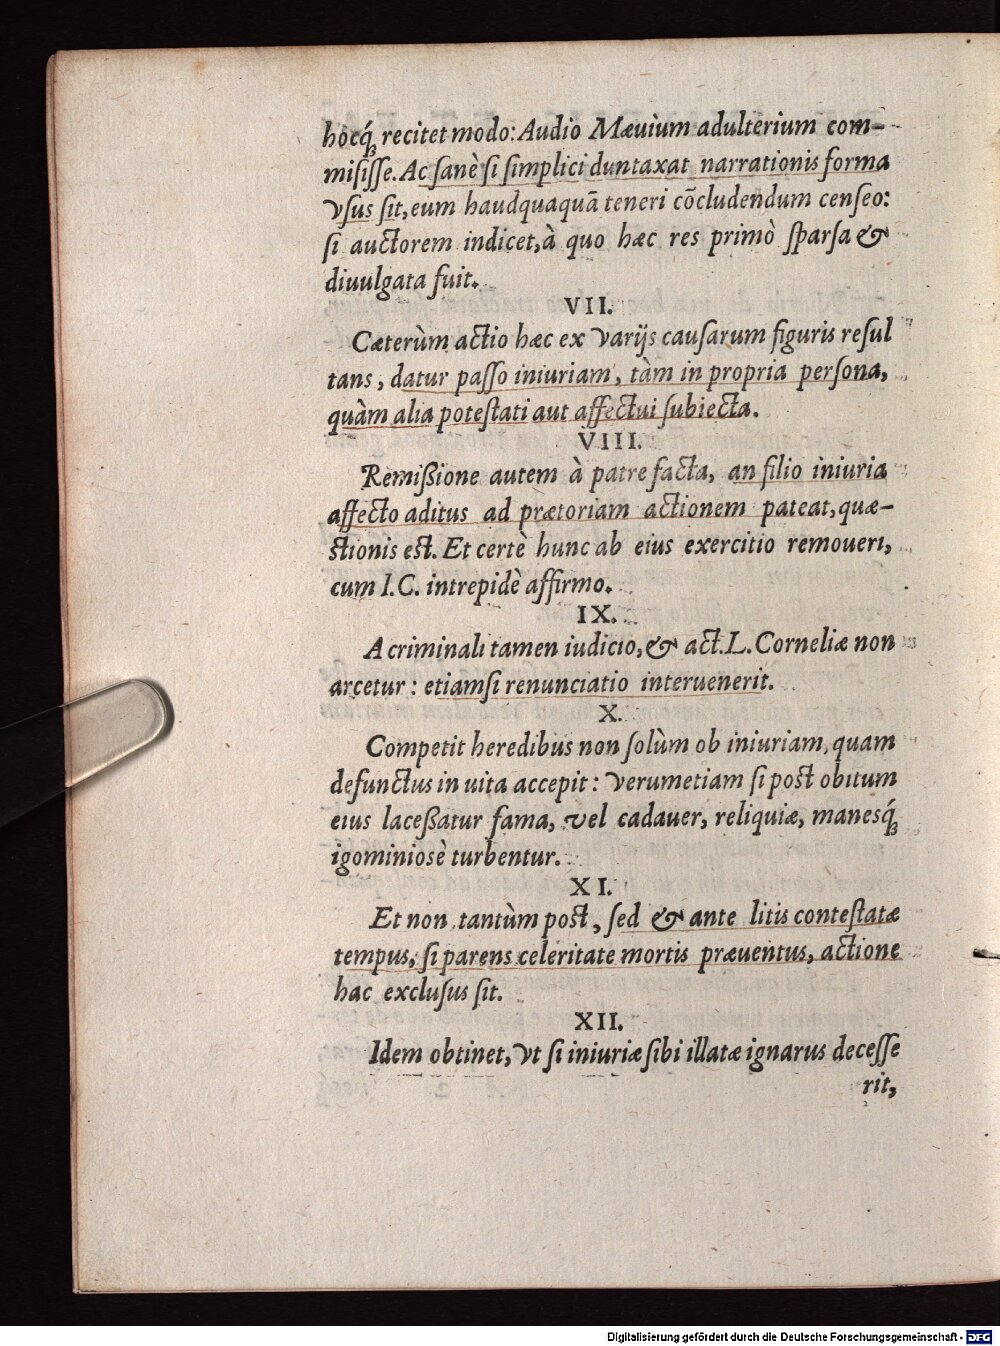 hocq́ꝫ recitet modo: Audio Mæuium adulterium com-
misisse. Ac sanè si simplici duntaxat narrationis forma
vsus sit, eum haudquaquā teneri cōcludendum censeo:
si auctorem indicet, à quo hæc res primò sparsa &
diuulgata fuit.
VII.
Cæterùm actio hæc ex varijs causarum figuris resul
tans, datur passo iniuriam, tàm in propria persona,
quàm alia potestati aut affectui subiecta.
VIII.
Remißione autem à patre facta, an filio iniuria
affecto aditus ad prætoriam actionem pateat, quæ-
stionis est. Et certè hunc ab eius exercitio remoueri,
cum I.C. intrepidè affirmo.
IX.
A criminali tamen iudicio, & act. L. Corneliæ non
arcetur: etiamsi renunciatio interuenerit.
X.
Competit heredibus non solùm ob iniuriam, quam
defunctus in uita accepit: verumetiam si post obitum
eius laceßatur fama, vel cadauer, reliquiæ, manesq́ꝫ
igominiosè turbentur.
XI.
Et non tantùm post, sed & ante litis contestatæ
tempus, si parens celeritate mortis præuentus, actione
hac exclusus sit.
XII.
Idem obtinet, vt si iniuriæ sibi illatæ ignarus decesse
rit,
Digitalisierung gefördert durch die Deutsche Forschungsgemeinschaft - DFG